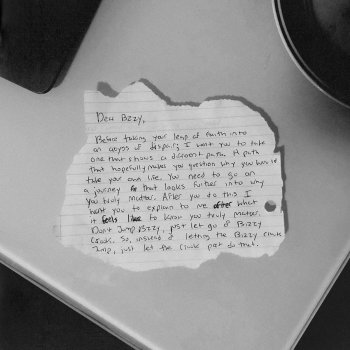 Dear Bizzy,
Before taking your leap of faith into
an abyss of despair, I want you to take
one that shows a different path. A path
that hopefully makes you question why you
take your own life. You need to go on
a journey that looks further into why
you truly matter. After you do this I
want you to explain to me after what
it feels like to know you truly matter.
Don't Jump Bizzy, just let go of Bizzy
Crook. So, instead of letting the Bizzy Crook
Jump, just let the Crook part do that.